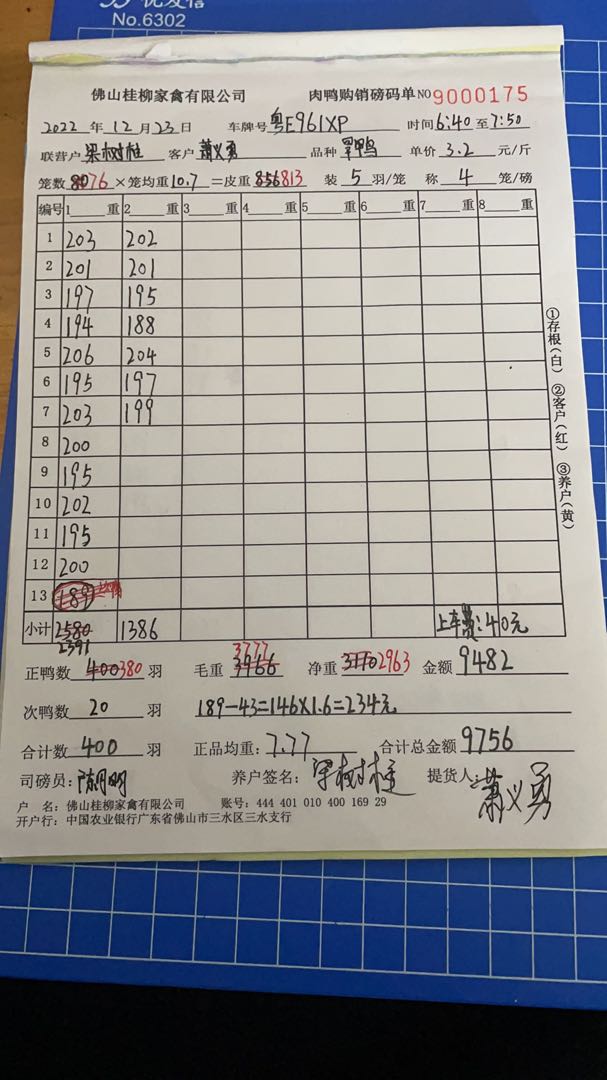 No.6302
佛山桂柳家禽有限公司 肉鸭购销磅码单 NO 9000175
2022 年 12 月 23 日 车牌号 粤E961XP 时间 6:40 至 7:50
联营户 梁树桂 客户 萧义勇 品种 单价 3.2 元/斤
笼数 80 76 ×笼均重 10.7 =皮重 856 813 装 5 羽/笼 称 4 笼/磅
编号 1 重 2 重 3 重 4 重 5 重 6 重 7 重 8 重
1 203 202
2 201 201
3 197 195
4 194 188
5 206 204
6 195 197
7 203 199
8 200
9 195
10 202
11 195
12 200
13 189
小计 2580 2391 1386 上车费:40元
正鸭数 400 380 羽 毛重 3966 3777 净重 3110 2963 金额 9482
次鸭数 20 羽 189-43=146×1.6=234元
合计数 400 羽 正品均重: 7.77 合计总金额 9756
司磅员: 陈月明 养户签名: 梁树桂 提货人: 萧义勇
户 名: 佛山桂柳家禽有限公司 账号: 444 401 010 400 169 29
开户行: 中国农业银行广东省佛山市三水区三水支行
①存根(白) ②客户(红) ③养户(黄)